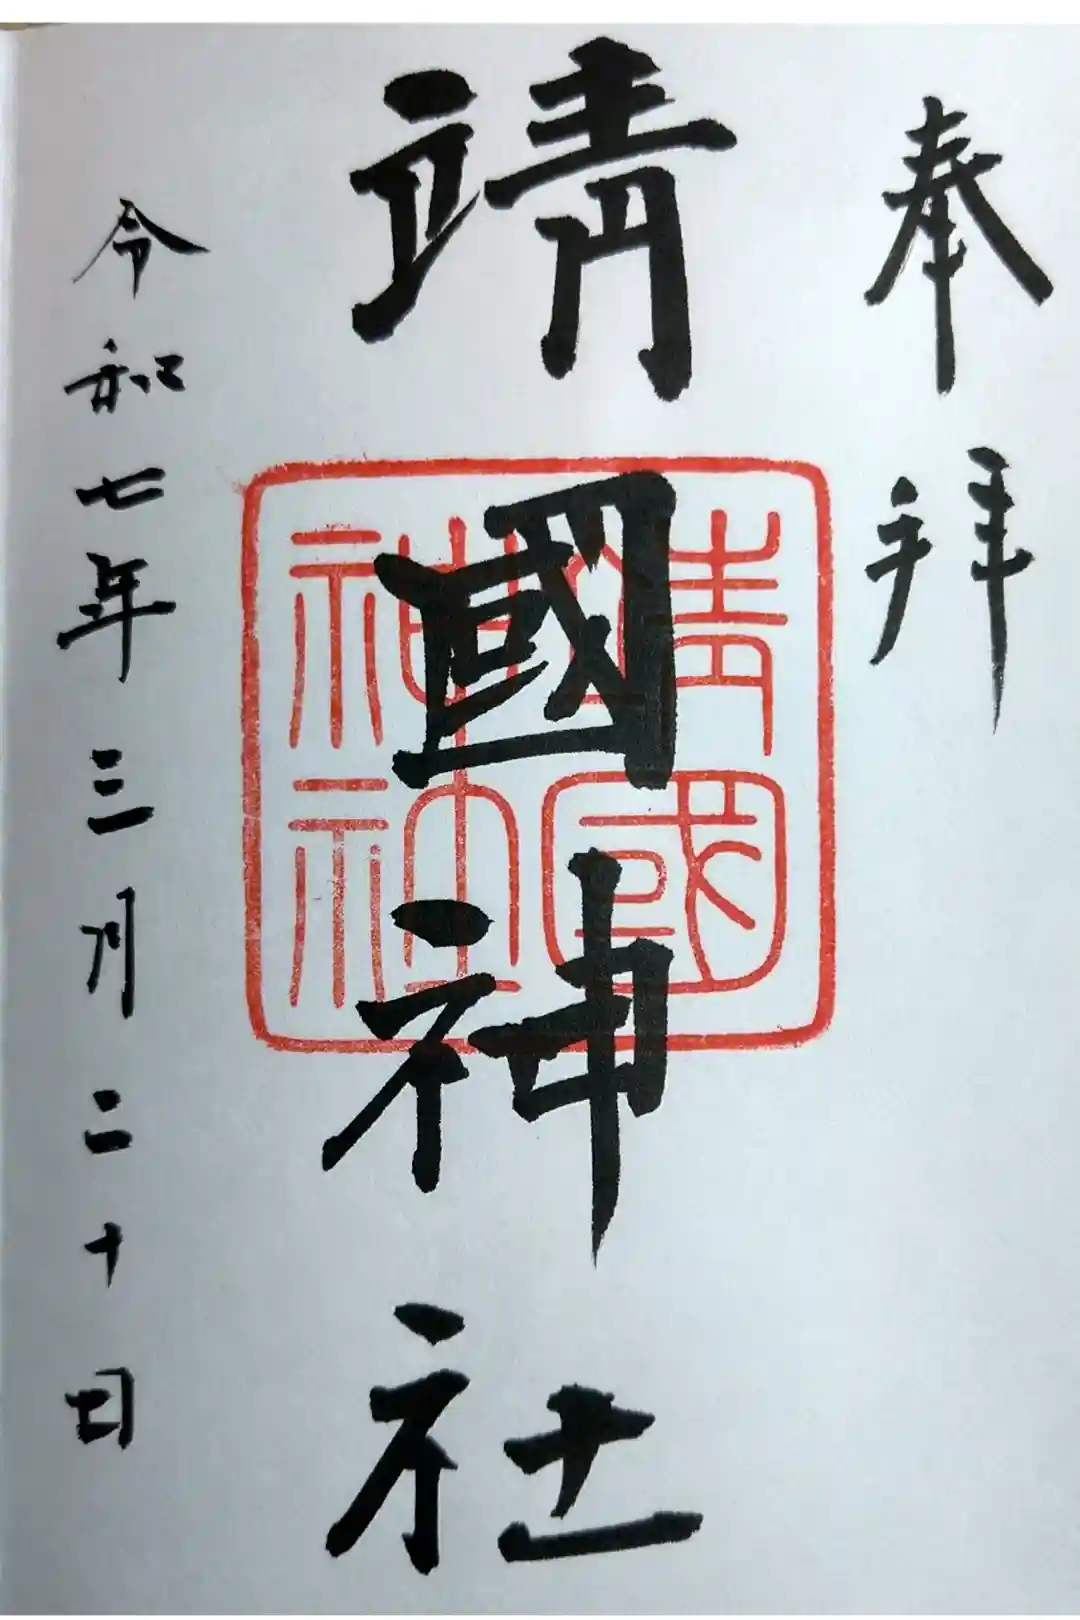 奉拝
靖國神社
靖國
神社
令和七年三月二十日